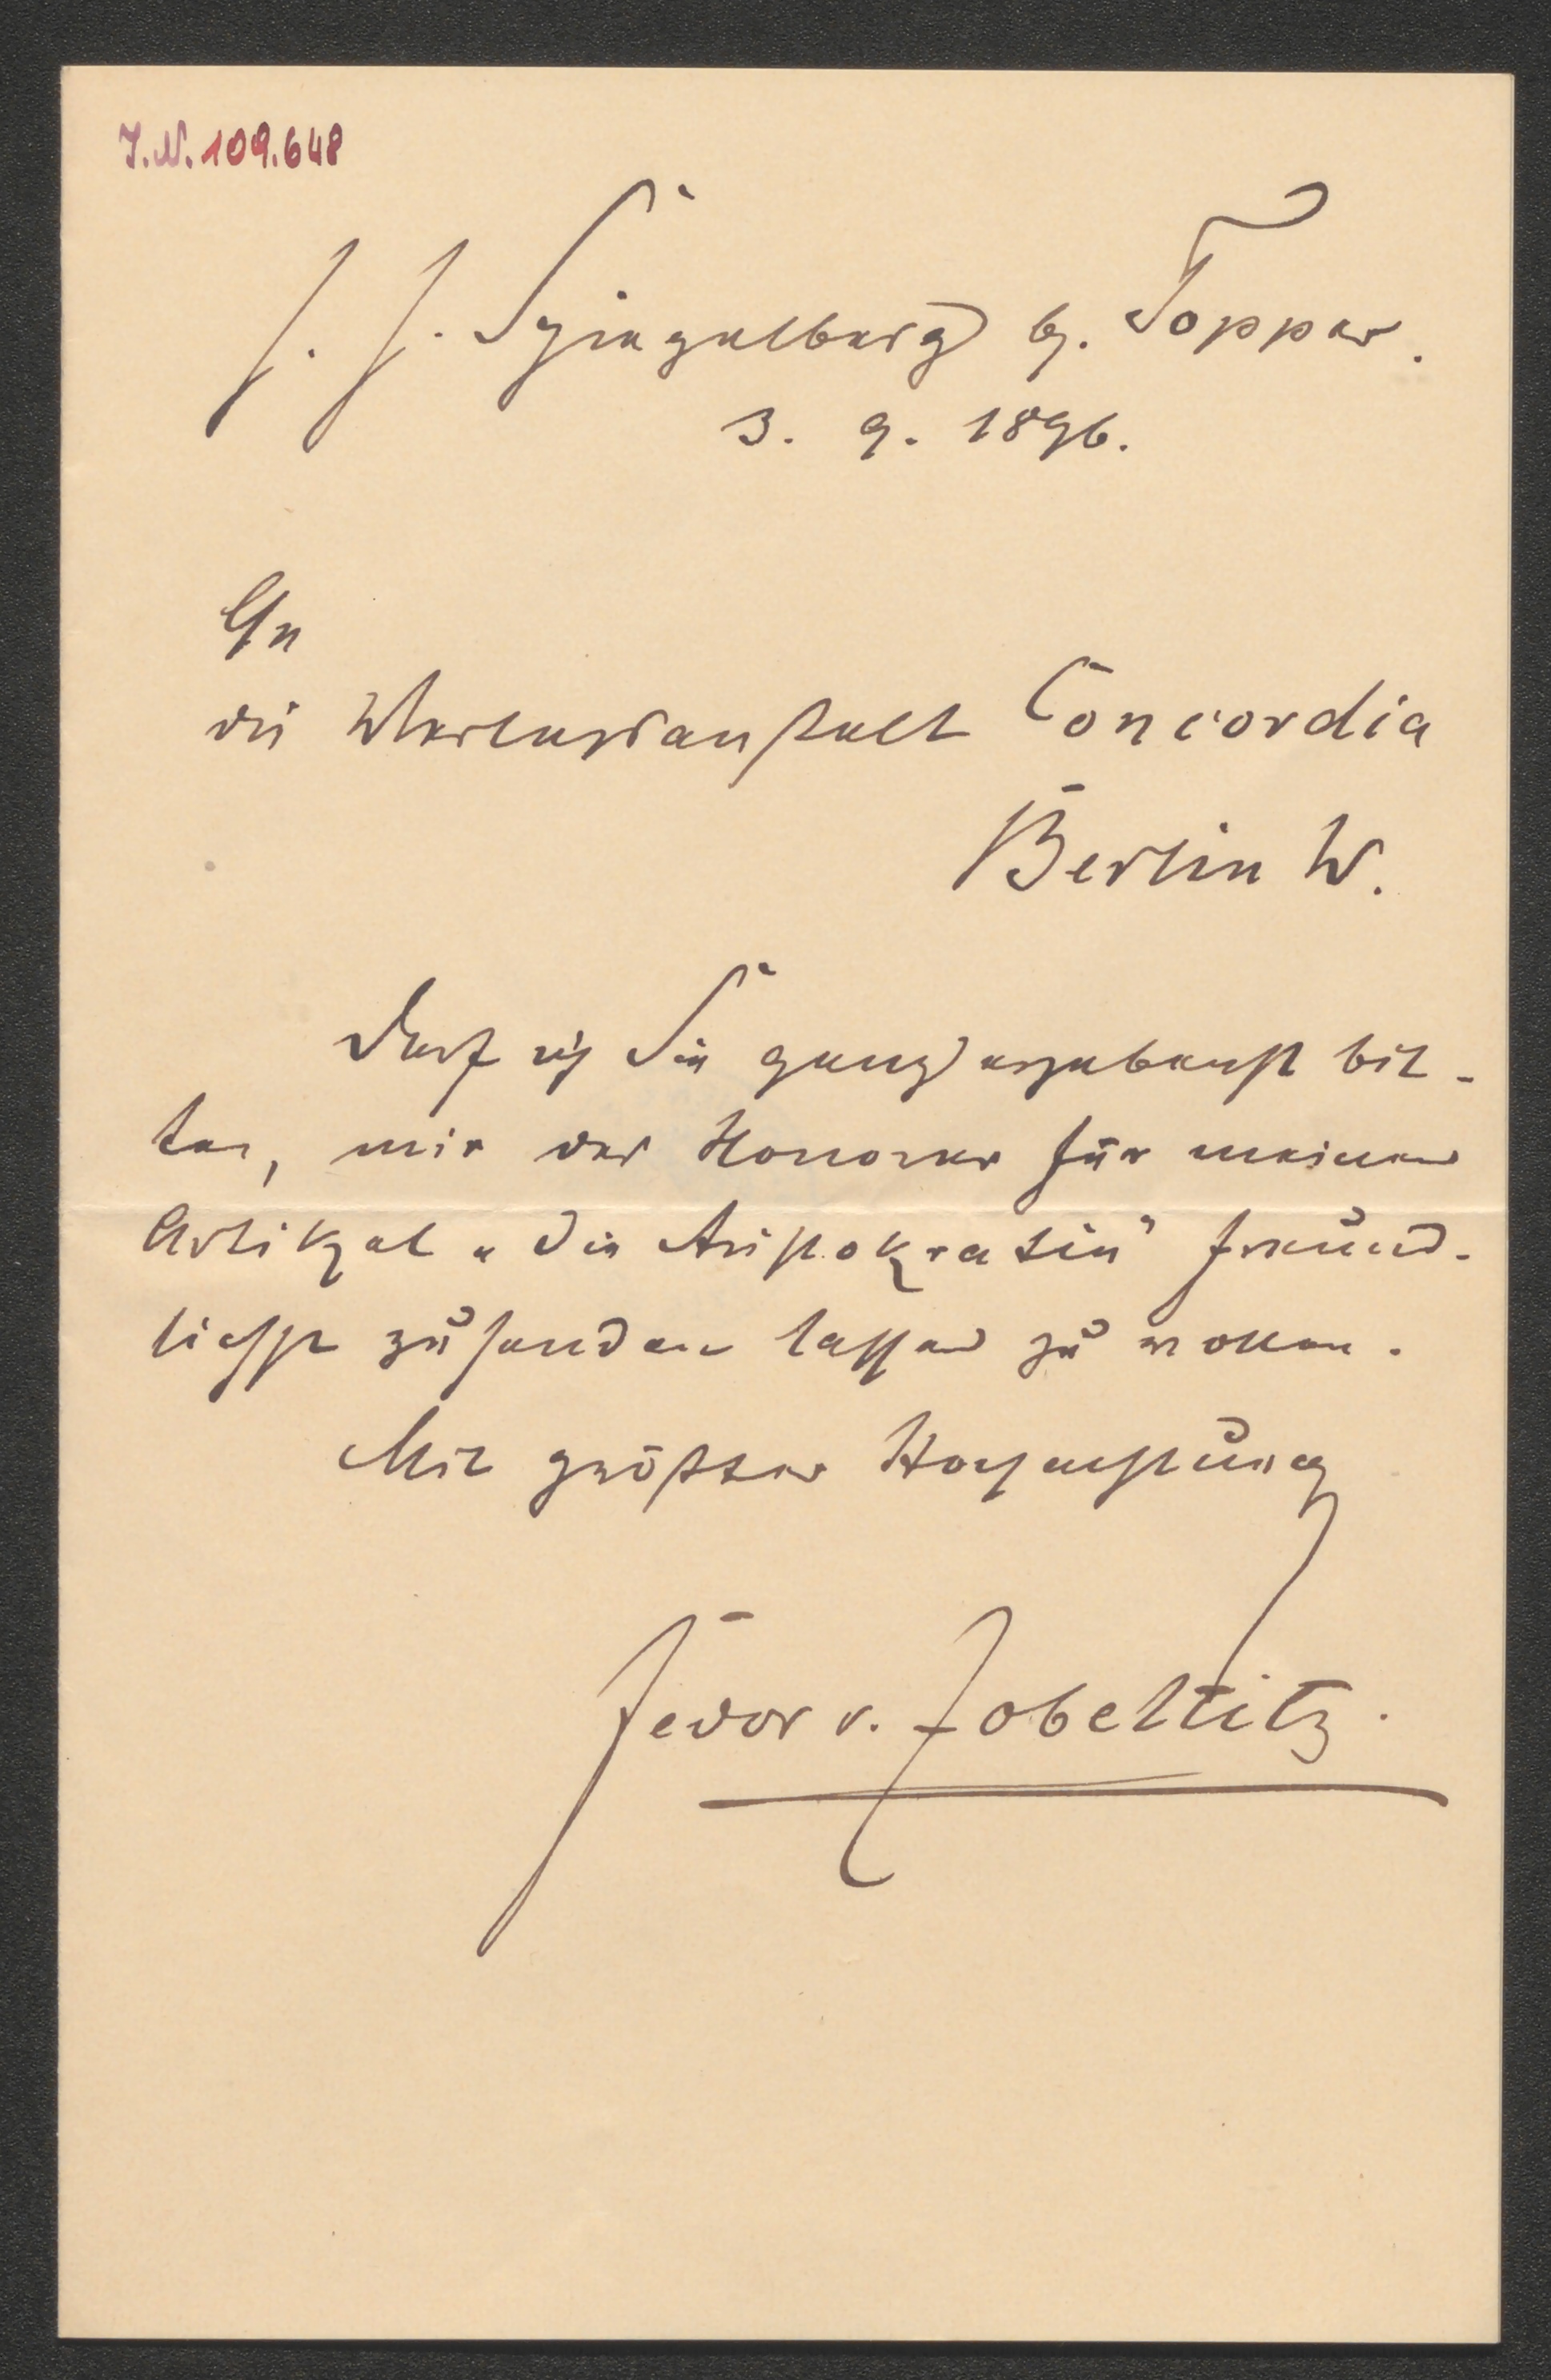 J.N. 109.648
z. Z. Spiegelberg b. Topper.
3. 9. 1896.
An
die Verlagsanstalt Concordia
Berlin W.
Darf ich Sie ganz ergebenst bit-
ten, mir das Honorar für meinen
Artikel „Die Aristokratin" freund-
lichst zusenden lassen zu wollen.
Mit größter Hochachtung
Fedor v. Zobeltitz.